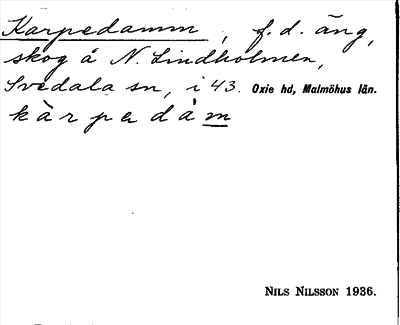 Karpedamm, f. d. äng,
skog å N. Lindholmen,
Svedala sn, i 43. Oxie hd, Malmöhus län.
kàrpedàm
NILS NILSSON 1936.